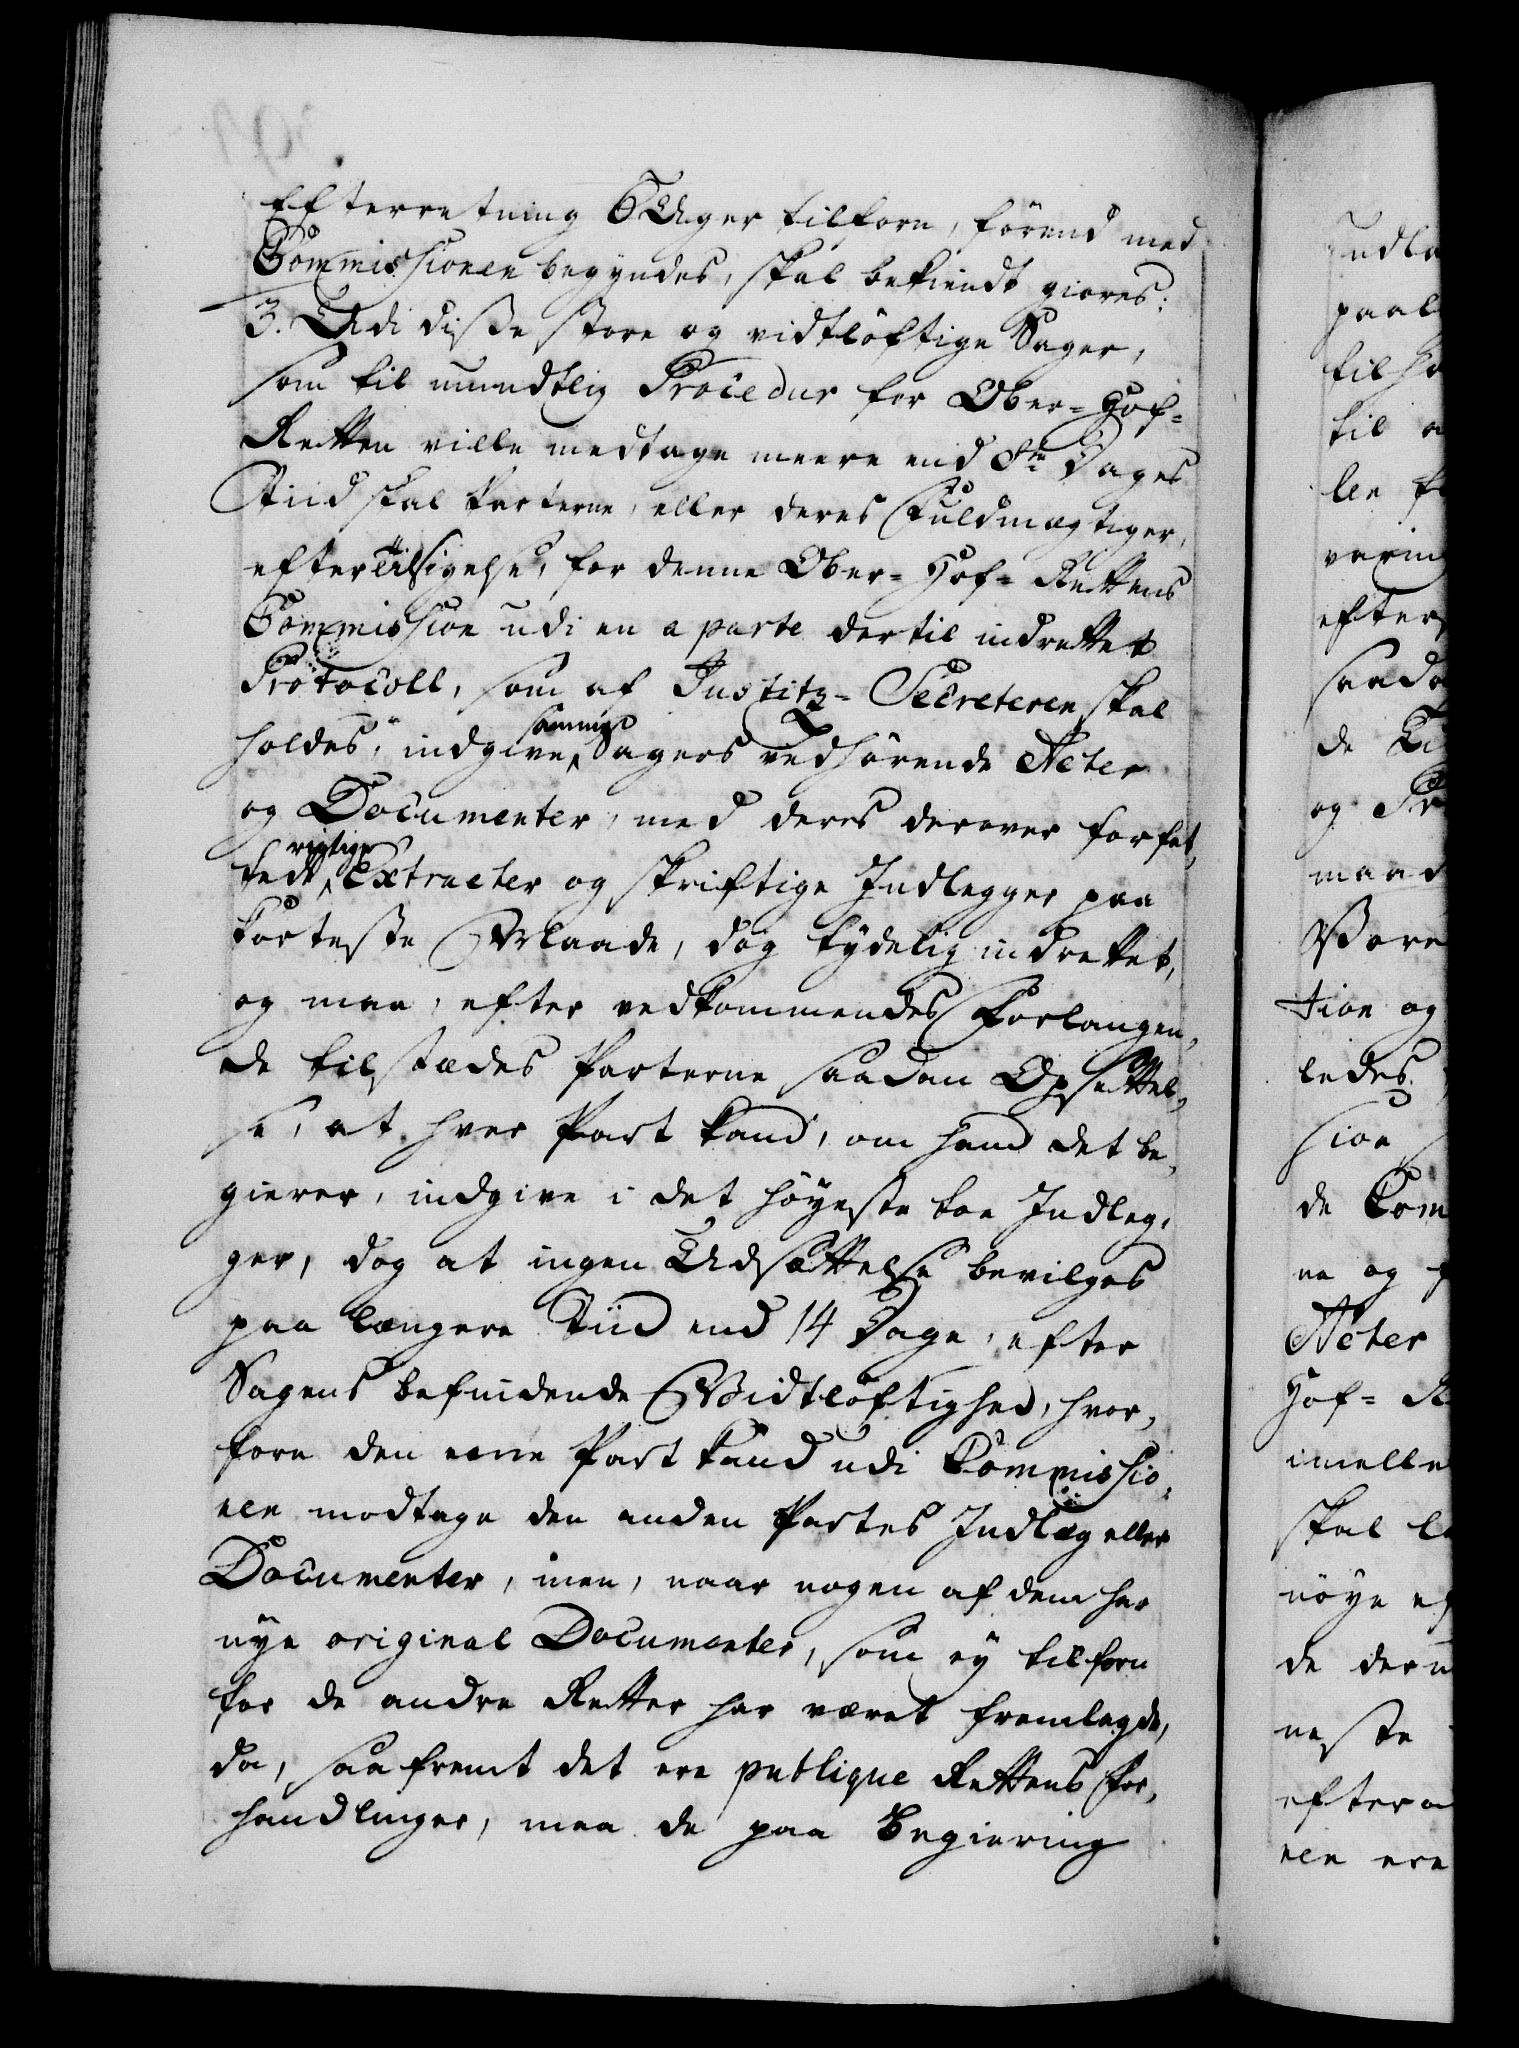 Efterretning 6 Uger tilforn, förend med
Commissionen begyndes, skal bekiendt giöres:
3. Udi disse store og vidtlöftige Sager,
som til mundtlig Procedur for Ober-Hof-
Retten ville medtage meere end 8te Dages
Tiid skal Parterne, eller deres Fuldmægtiger,
efter Tilsigelse, for denne Ober-Hof-Rettens
Commission udi en a parte dertil indrettet
Protocoll, som af Justitz-Secreteren skal
holdes, indgive samme Sagers vedhörende Acter
og Documenter, med deres derover forfat,
tede rigtige Extracter og skriftige Indlegger paa
korteste Maade, dog tydelig indrettet,
og maa, efter vedkommendes Forlangen,
de tilstædes Parterne saadan Opsættel,
se, at hver Part kand, om hand det be,
gierer, indgive i det höyeste toe Indleg,
ger, dog at ingen Udsættelse bevilges
paa længere Tiid end 14 Dage, efter
Sagens befindende Vidtlöftighed, hvor,
fore den eene Part kand udi Commissio,
nen modtage den anden Partes Indlæg eller
Documenter, men, naar nogen af dem har
nye original Documenter, som ey tilforn
for de andre Retter har været fremlagde,
da, saafremt det ere publique Rettens For,
handlinger, maa de paa Begiering